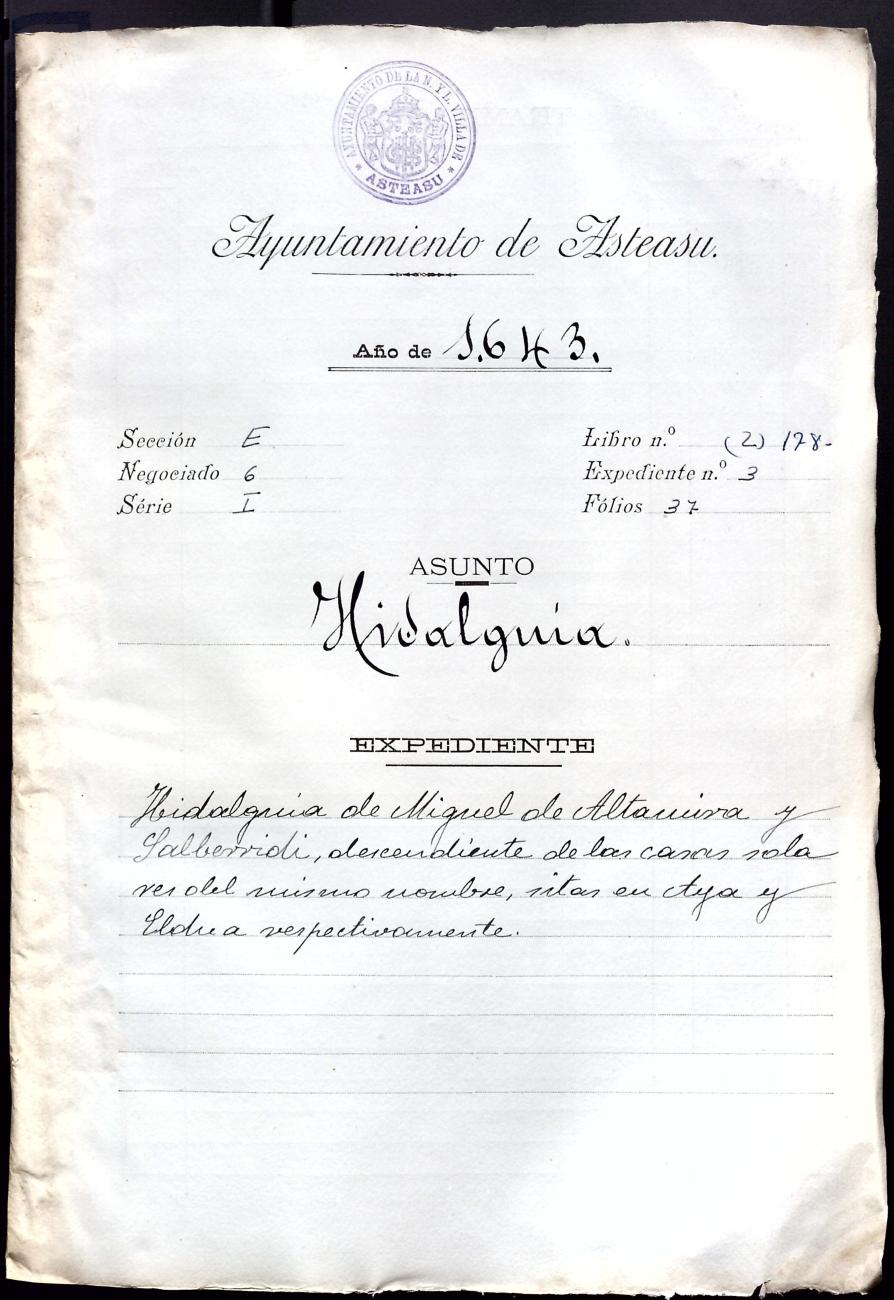 AYUNTAMIENTO DE LA N. Y L. VILLA DE
* ASTEASU *
Ayuntamiento de Asteasu.
Año de 1.643.
Sección E
Negociado 6
Série I
Libro n.º (2) 178-
Expediente n.º 3
Fólios 37
ASUNTO
Hidalguía.
EXPEDIENTE
Hidalguía de Miguel de Altamira y
Salberridi, descendiente de las casas sola
res del mismo nombre, sitas en Aya y
Eldua respectivamente.